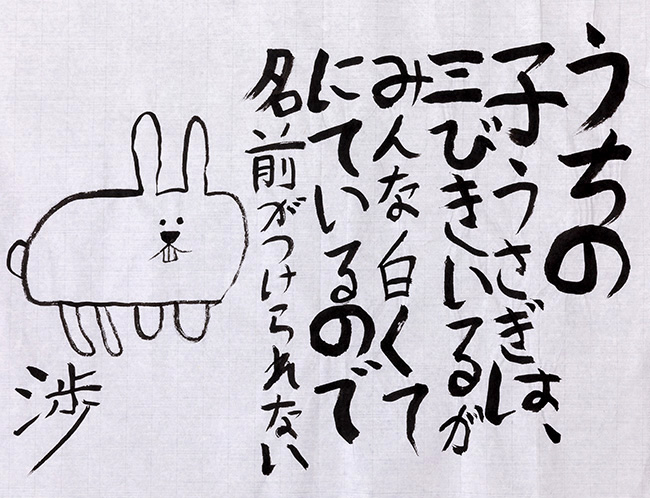 うちの
子うさぎは、
三びきいるが
みんな白くて
にているので
名前がつけられない
渉